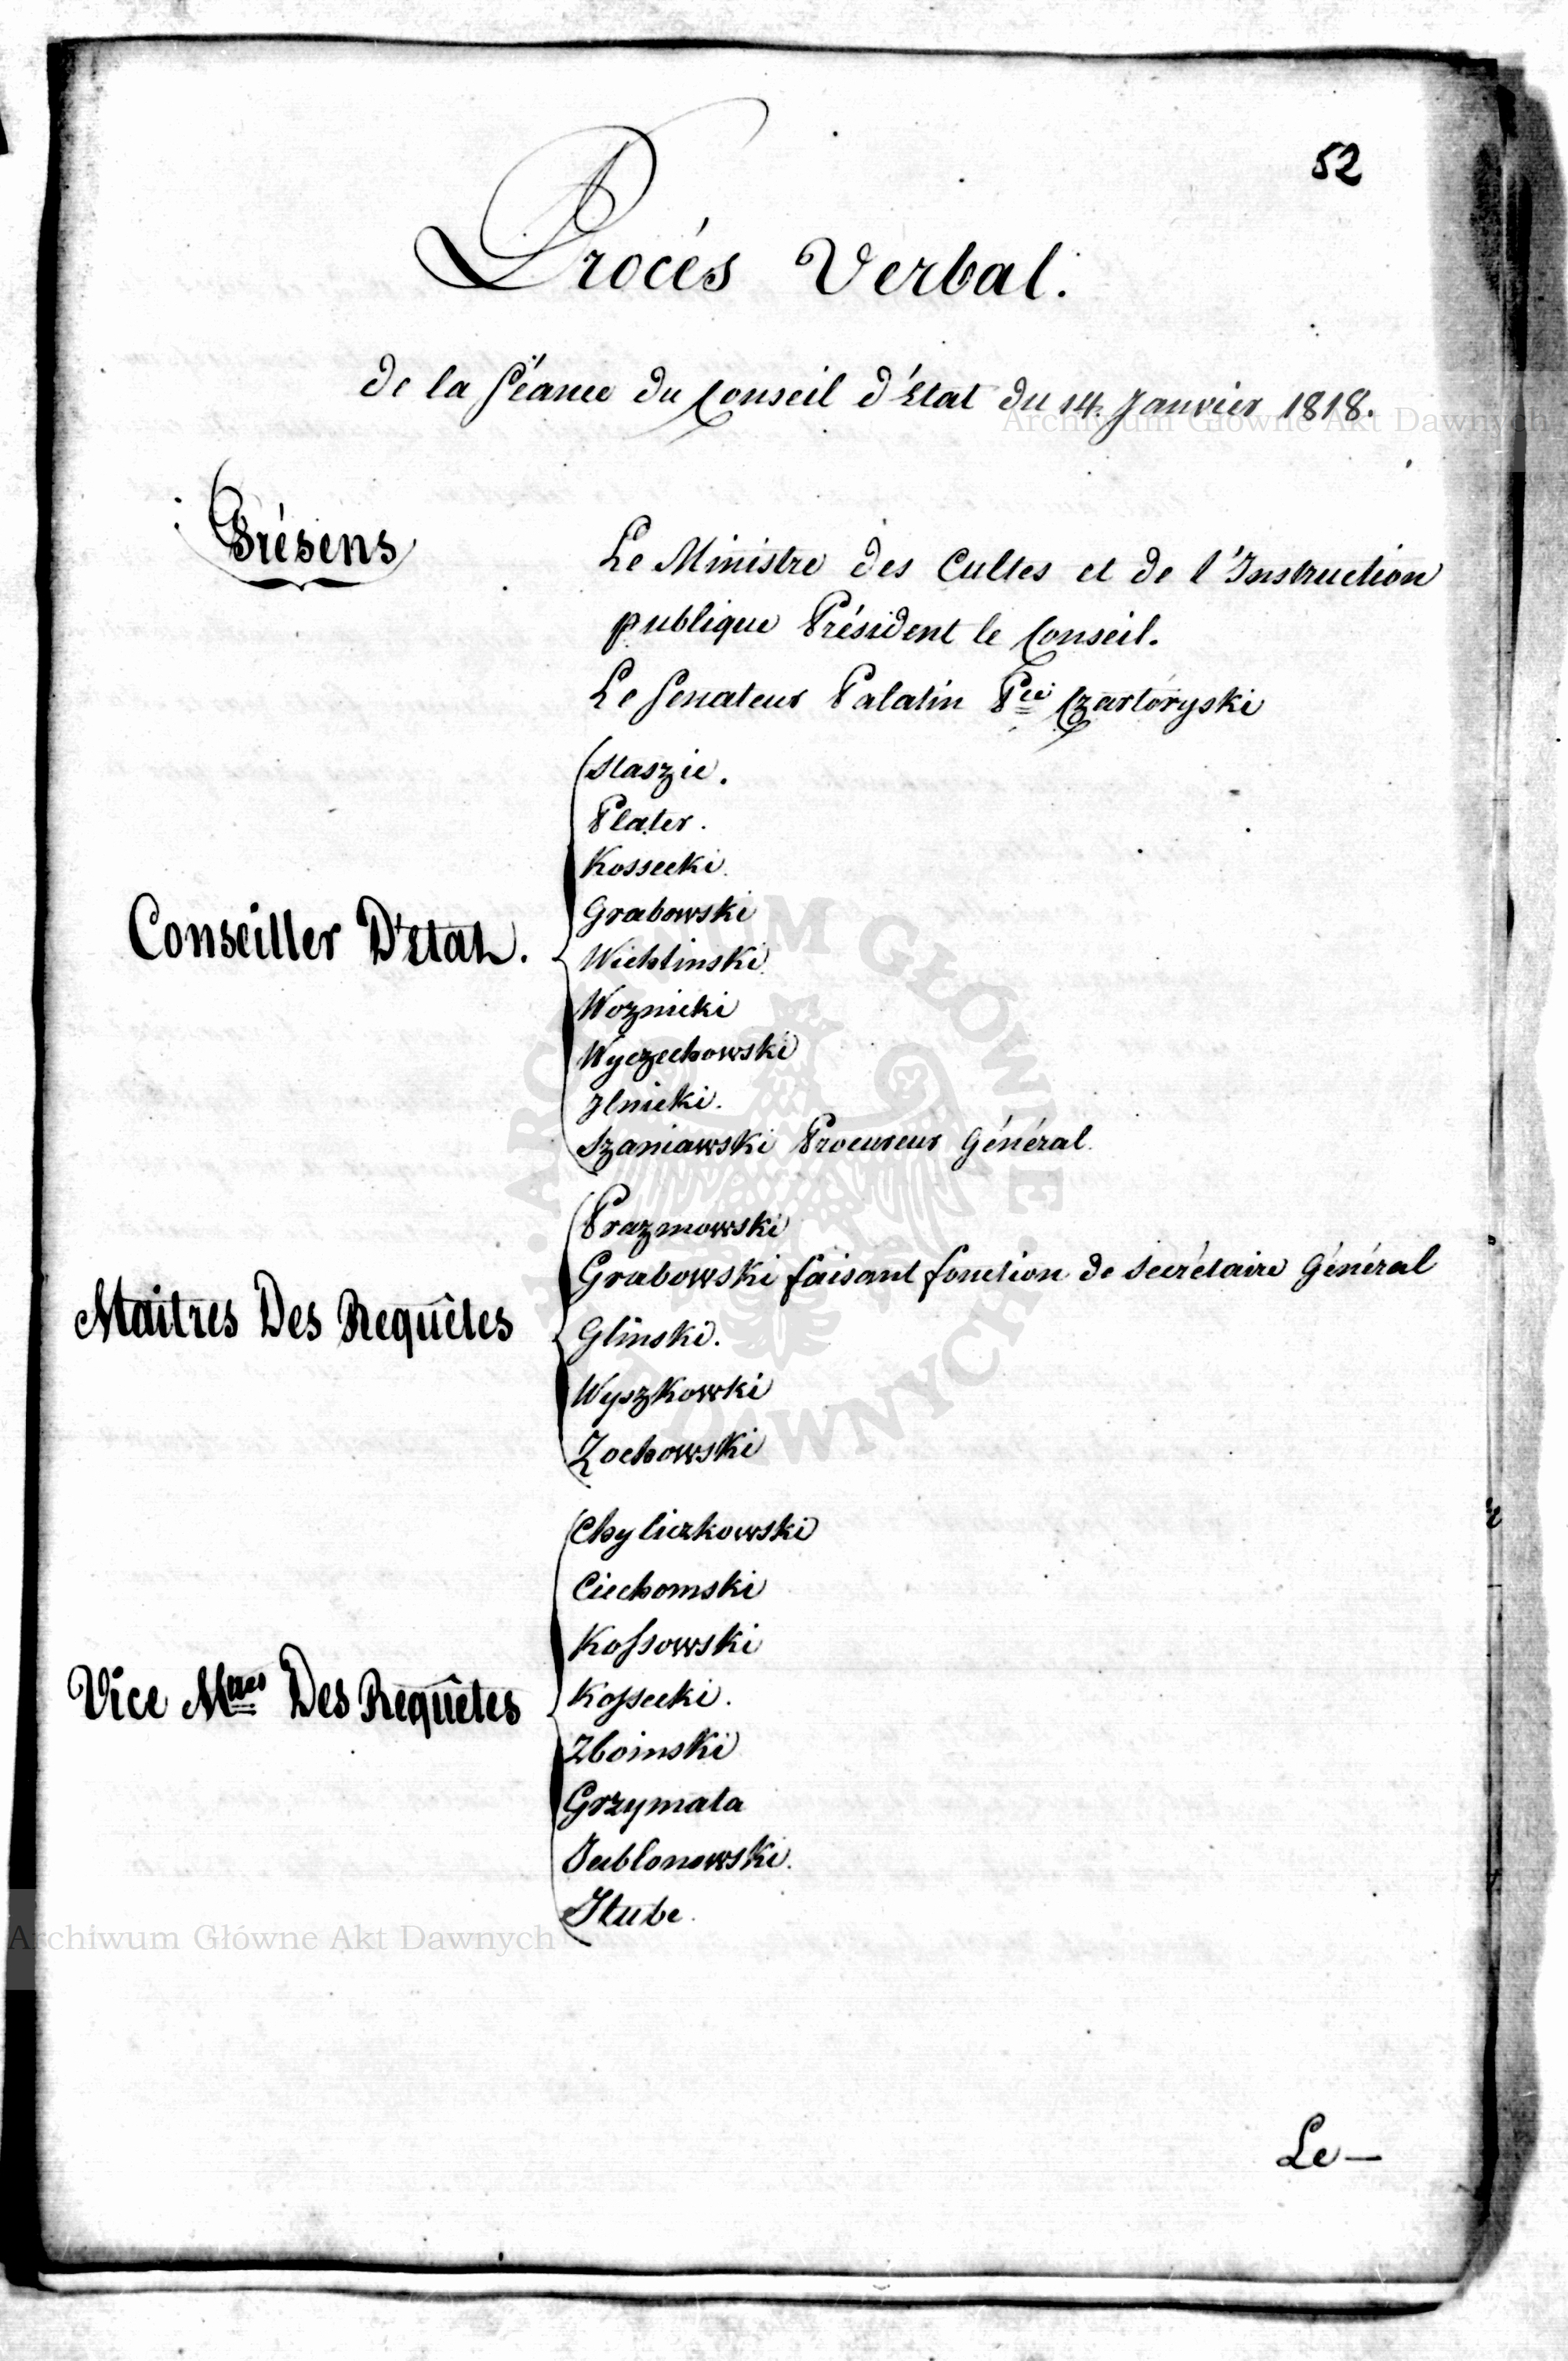 52
Procés Verbal.
de la Séance du Conseil d'Etat du 14. Janvier 1818.
Présens
Le Ministre des Cultes et de l'Instruction
publique Président le Conseil.
Le Senateur Palatin Pce Czartoryski
Conseiller D'etat.
Staszic.
Plater.
Kossecki.
Grabowski
Wichlinski
Woznicki
Wyczechowski
Ilnicki.
Szaniawski Procureur Général.
Maitres Des Requêtes
Prazmowski
Grabowski faisant fonction de Secrétaire Général
Glinski.
Wyszkowki
Zochowski
Vice Mtres Des Requêtes
Chyliczkowski
Ciechomski
Kossowski
Kossecki.
Zboinski
Grzymala
Jablonowski.
Stube.
Le —
Archiwum Główne Akt Dawnych
Archiwum Główne Akt Dawnych
ARCHIWUM GŁÓWNE AKT DAWNYCH